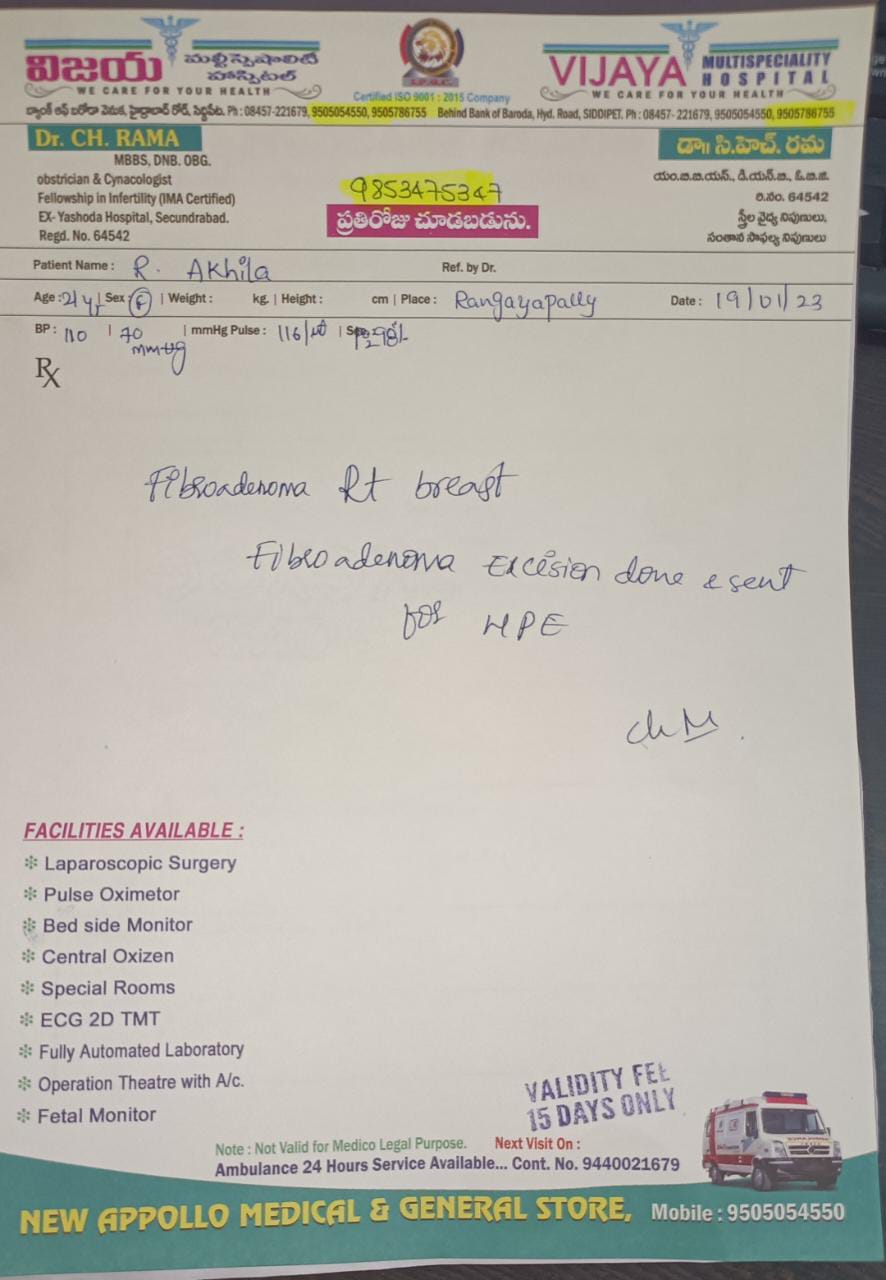 విజయ మల్టీస్పెషాలిటీ హాస్పిటల్
WE CARE FOR YOUR HEALTH
Certified ISO 9001 : 2015 Company
VIJAYA MULTISPECIALITY HOSPITAL
WE CARE FOR YOUR HEALTH
బ్యాంక్ ఆఫ్ బరోడా వెనుక, హైద్రాబాద్ రోడ్, సిద్దిపేట. Ph : 08457-221679, 9505054550, 9505786755 Behind Bank of Baroda, Hyd. Road, SIDDIPET. Ph : 08457- 221679, 9505054550, 9505786755
Dr. CH. RAMA
MBBS, DNB. OBG.
obstrician & Cynacologist
Fellowship in Infertility (IMA Certified)
EX- Yashoda Hospital, Secundrabad.
Regd. No. 64542
9853475347
ప్రతిరోజు చూడబడును.
డా॥ సి.హెచ్. రమ
యం.బి.బి.యస్., డి.యన్.బి., ఓ.బి.జి.
రి.నం. 64542
స్త్రీల వైద్య నిపుణులు,
సంతాన సాఫల్య నిపుణులు
Patient Name : R. Akhila Ref. by Dr.
Age : 21 yr | Sex (F) | Weight : kg. | Height : cm | Place : Rangayapally Date : 19/01/23
BP : 110 | 70 mmHg | mmHg Pulse : 116/mt | Spo2 98%
Rx
Fibroadenoma Rt breast
Fibroadenoma Excision done & sent
for HPE
FACILITIES AVAILABLE :
❇ Laparoscopic Surgery
❇ Pulse Oximetor
❇ Bed side Monitor
❇ Central Oxizen
❇ Special Rooms
❇ ECG 2D TMT
❇ Fully Automated Laboratory
❇ Operation Theatre with A/c.
❇ Fetal Monitor
VALIDITY FEE
15 DAYS ONLY
Note : Not Valid for Medico Legal Purpose. Next Visit On :
Ambulance 24 Hours Service Available... Cont. No. 9440021679
NEW APPOLLO MEDICAL & GENERAL STORE, Mobile : 9505054550